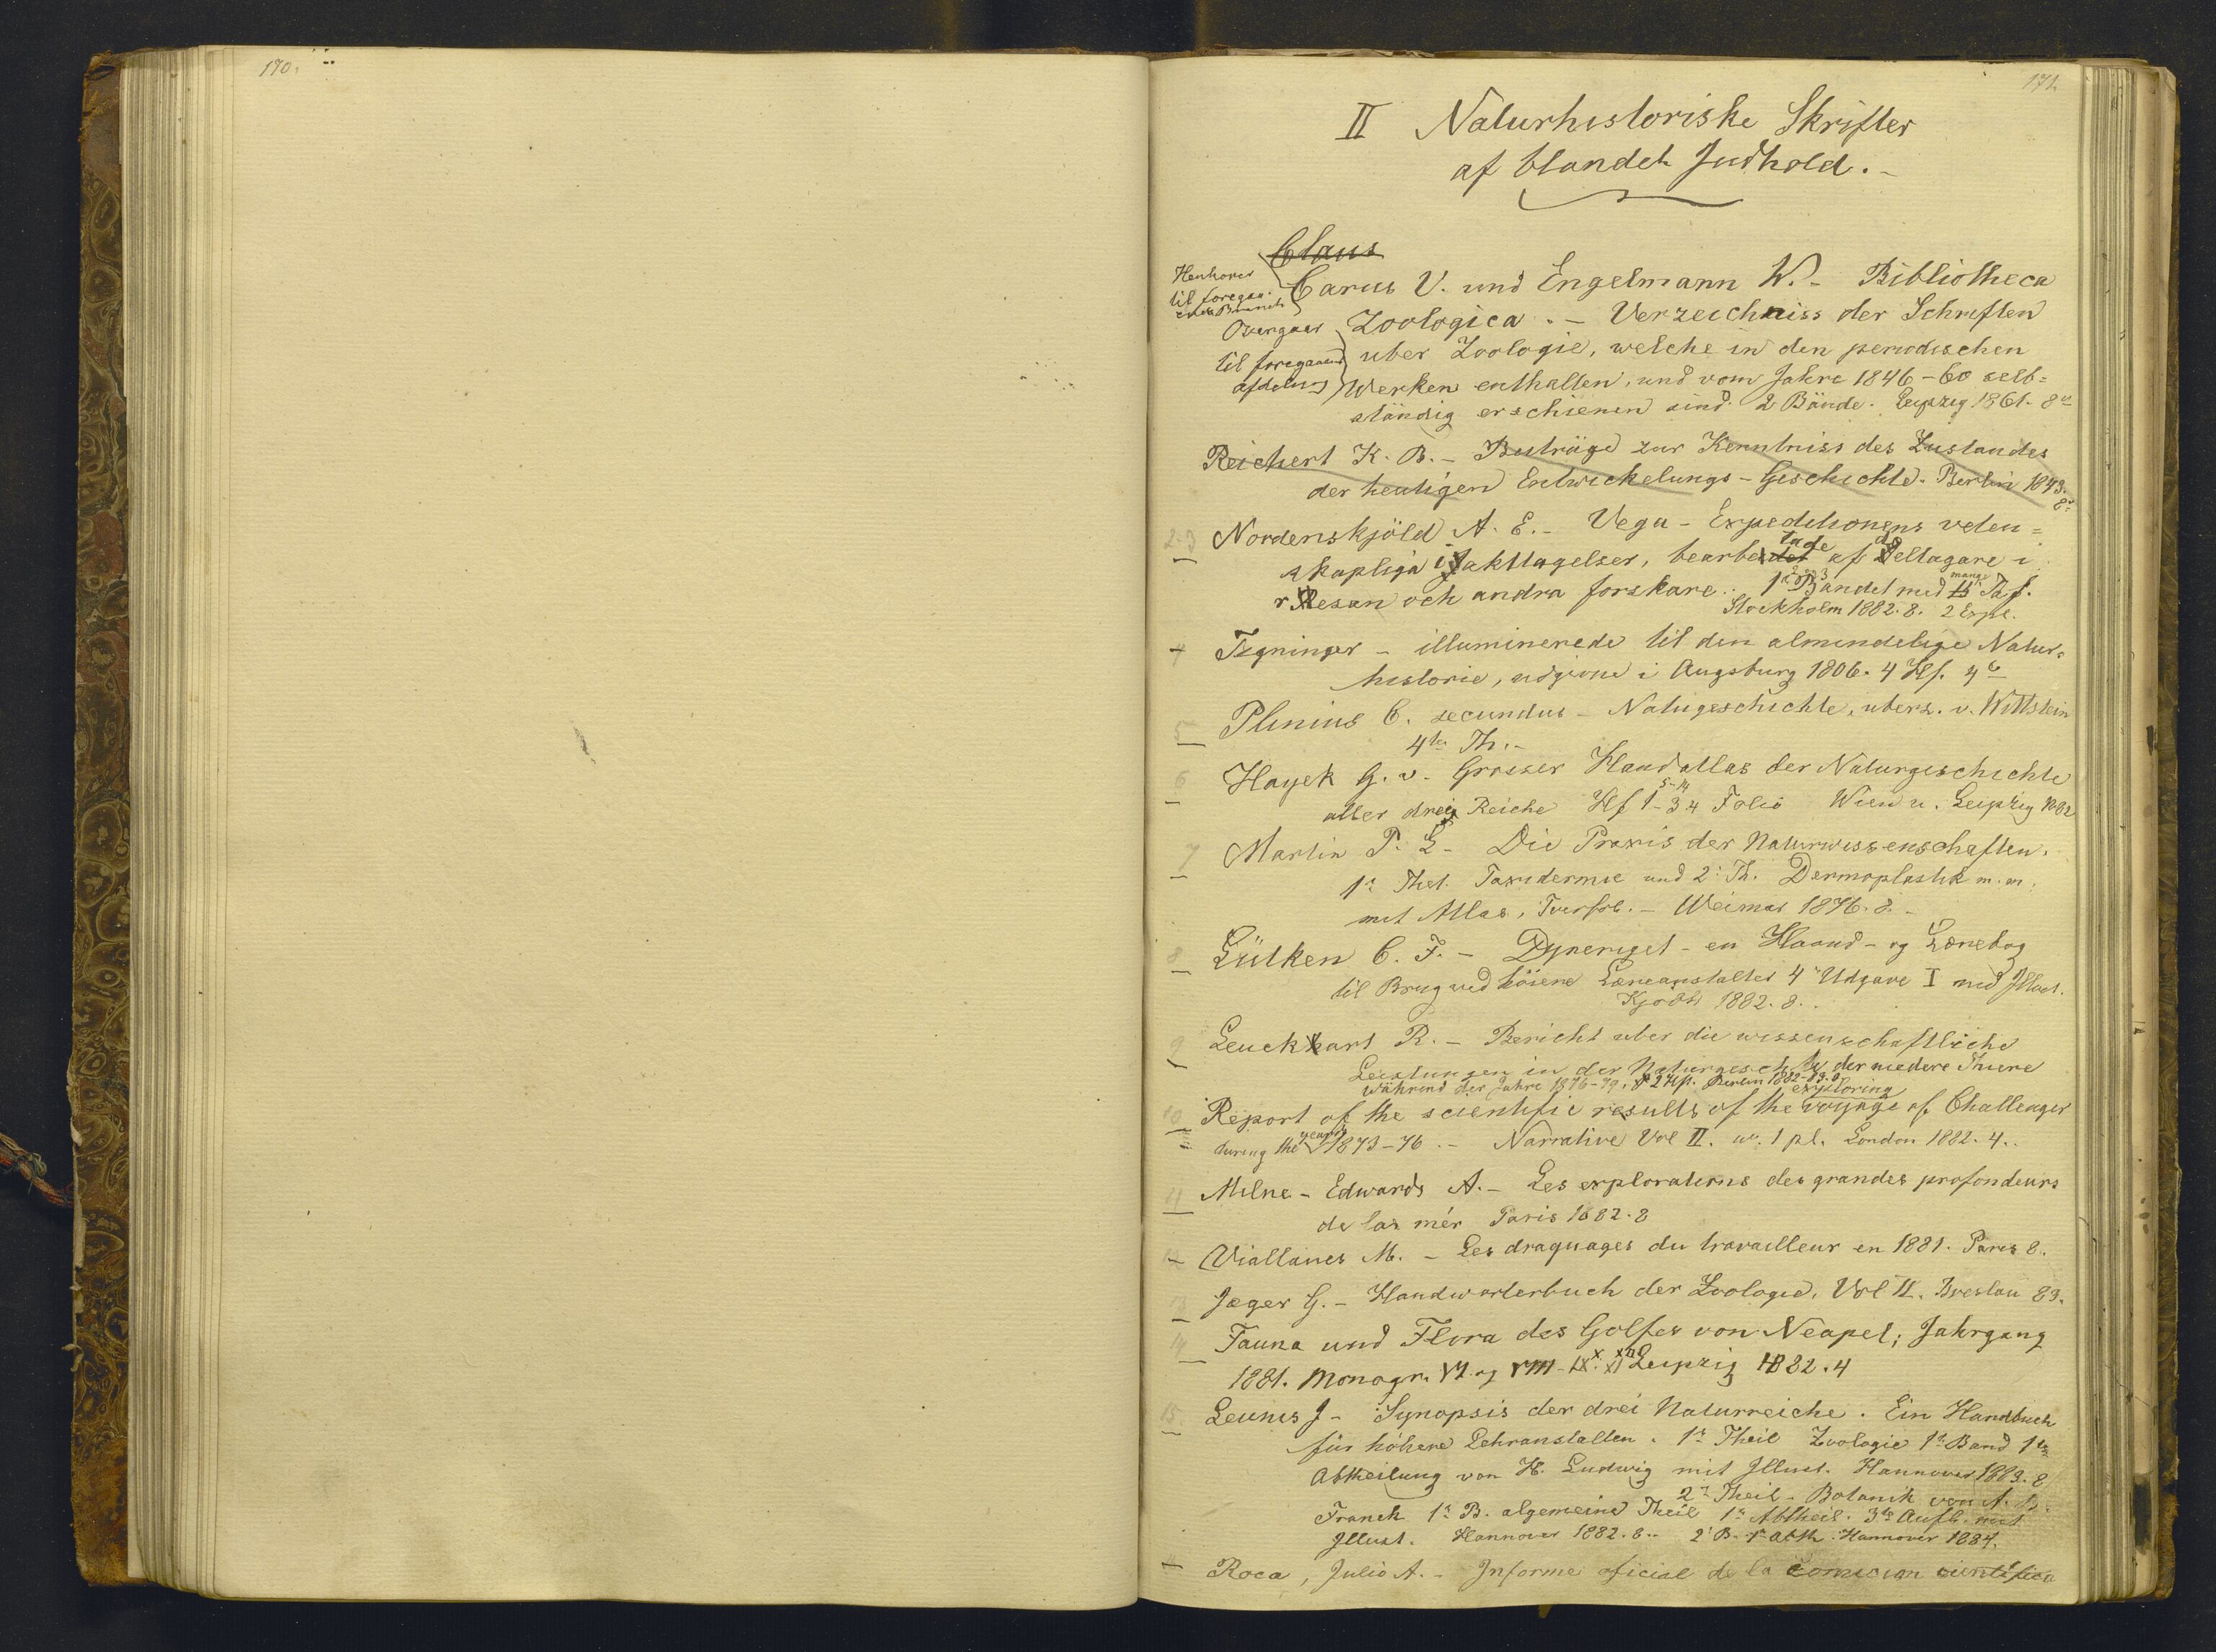 170.
171.
II Naturhistoriske Skrifter
af blandet Indhold.-
Claus
Henhører
til foregaa-
ende
Carus V. und Engelmann W. - Bibliotheca
Overgaar
Zoologica. - Verzeichniss der Schriften
til foregaaende
uber Zoologie, welche in den periodischen
afdeling
Werken enthalten, und vom Jahre 1846-60 selb=
ständig erschienen sind. 2 Bände. Leipzig 1861. 8vo
Reichert K. B. - Beiträge zur Kenntniss des Zustandes
der heutigen Entwickelungs-Geschichte. Berlin 1843.
8°
2-3 Nordenskjöld A. E. - Vega-Expeditionens veten=
skapliga iakttagelser, bearbetade af deltagare i
resan och andra forskare.. 1 2 og 3 Bandet med mange Taf.
Stockholm 1882. 8. 2 Expl.
4 Tegninger - illuminerede til den almindelige Natur=
historie, udgivne i Augsburg 1806. 4 Hf. 4to
5 Plinius C. secundus - Natugeschichte, uberz. v. Wittstein
4ter Th. -
6 Hayek G. v. Grosser Handatlas der Naturgeschichte
5-14
aller drei Reiche Hf 1-3.4 Folio Wien u. Leipzig 1882
7 Martin P. L - Die Praxis der Naturwissenschaften.
1r Thel. Taxidermie und 2r Th. Dermoplastik m. m.
mit Atlas, Tverfol. - Weimar 1876. 8. -
8 Lütken C. F. - Dyreriget - en Haand- og Lærebog
til Brug ved höiere Læreanstalter 4de Udgave I med Illust.
Kjøbh 1882. 8.
9 Leuckart R. - Bericht uber die wissenschaftliche
Leistungen in der Naturgesch. der niedere Thiere
während der Jahre 1876-79. 2 Hf. Berlin 1882-83. 8.
exploring
10 Report of the scientific results of the voyage of Challenger
during the years 1873-76. - Narrative Vol II. w. 1 pl. London 1882. 4..
11 Milne-Edwards A. - Les explorations des grandes profondeurs
de la mér Paris 1882. 8
12 Viallanes M. - Les draguages du travailleur en 1881. Paris 8.
13 Jæger G. - Handworterbuch der Zoologie. Vol II. Breslau 83.
14 Fauna und Flora des Golfes von Neapel; Jahrgang
1881. Monogr. VI og VIII-IX. X. XI XII Leipzig 1882. 4
15. Leunis J - Synopsis der drei Naturreiche. Ein Handbuch
für höhere Lehranstalten. 1r Theil Zoologie 1r Band 1te
Abtheilung von H. Ludwig mit Illust. Hannover 1883. 8
2r Theil - Botanik von A. B.
Franck 1r B. algemeine Theil 1e Abtheil. 3te Aufl. mit
Illust. Hannover 1882. 8.. 2r B. 1e Abth. Hannover 1884.
Roca, Julio A. - Informe oficial de la Comision cientifica